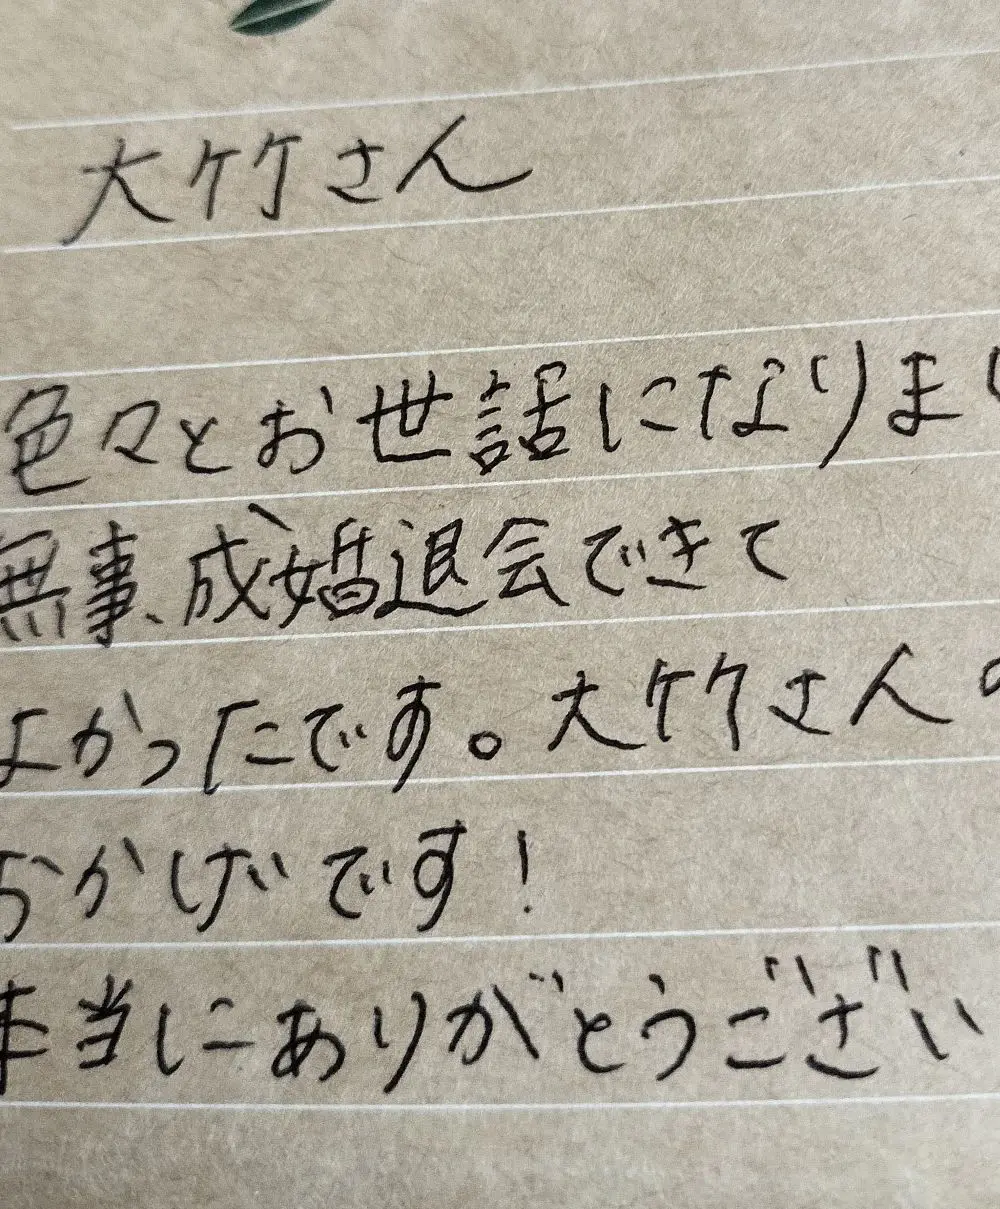 大竹さん
色々とお世話になりまし
無事、成婚退会できて
よかったです。大竹さんの
おかげです!
本当にありがとうござい